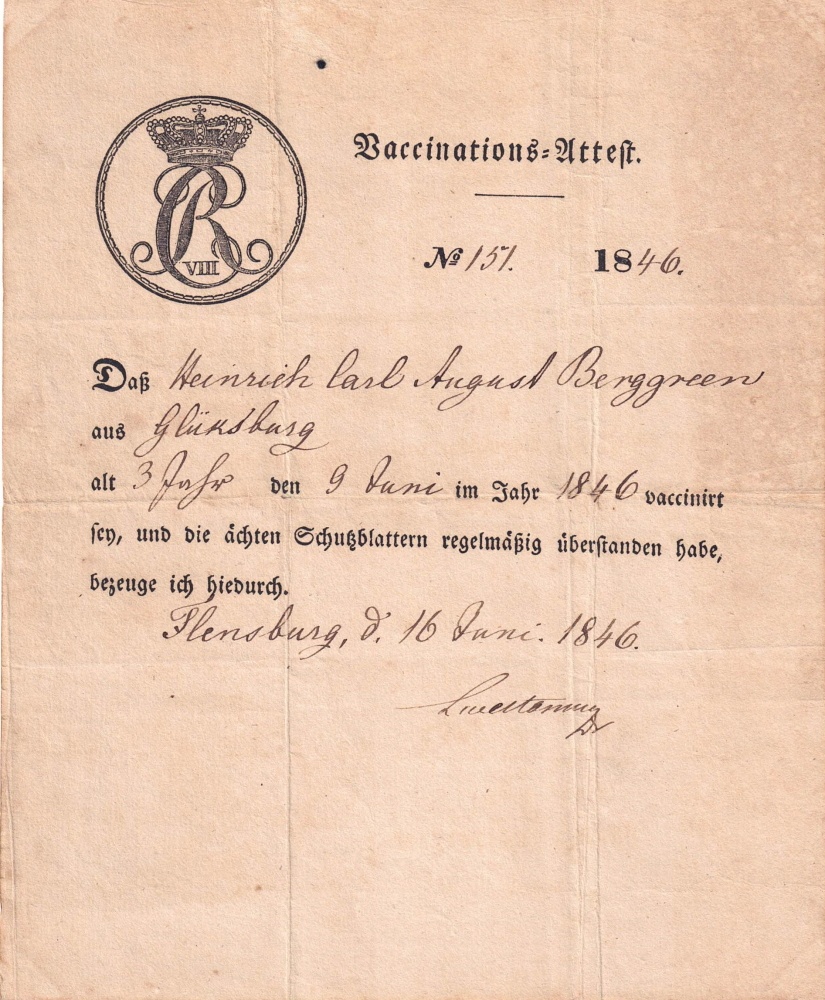 CR
VIII
Vaccinations-Attest.
№ 151. 1846.
Daß Heinrich Carl August Berggreen
aus Glüksburg
alt 3 Jahr den 9 Juni im Jahr 1846 vaccinirt
sey, und die ächten Schutzblattern regelmäßig überstanden habe,
bezeuge ich hiedurch.
Flensburg, d. 16 Juni. 1846.
Dr